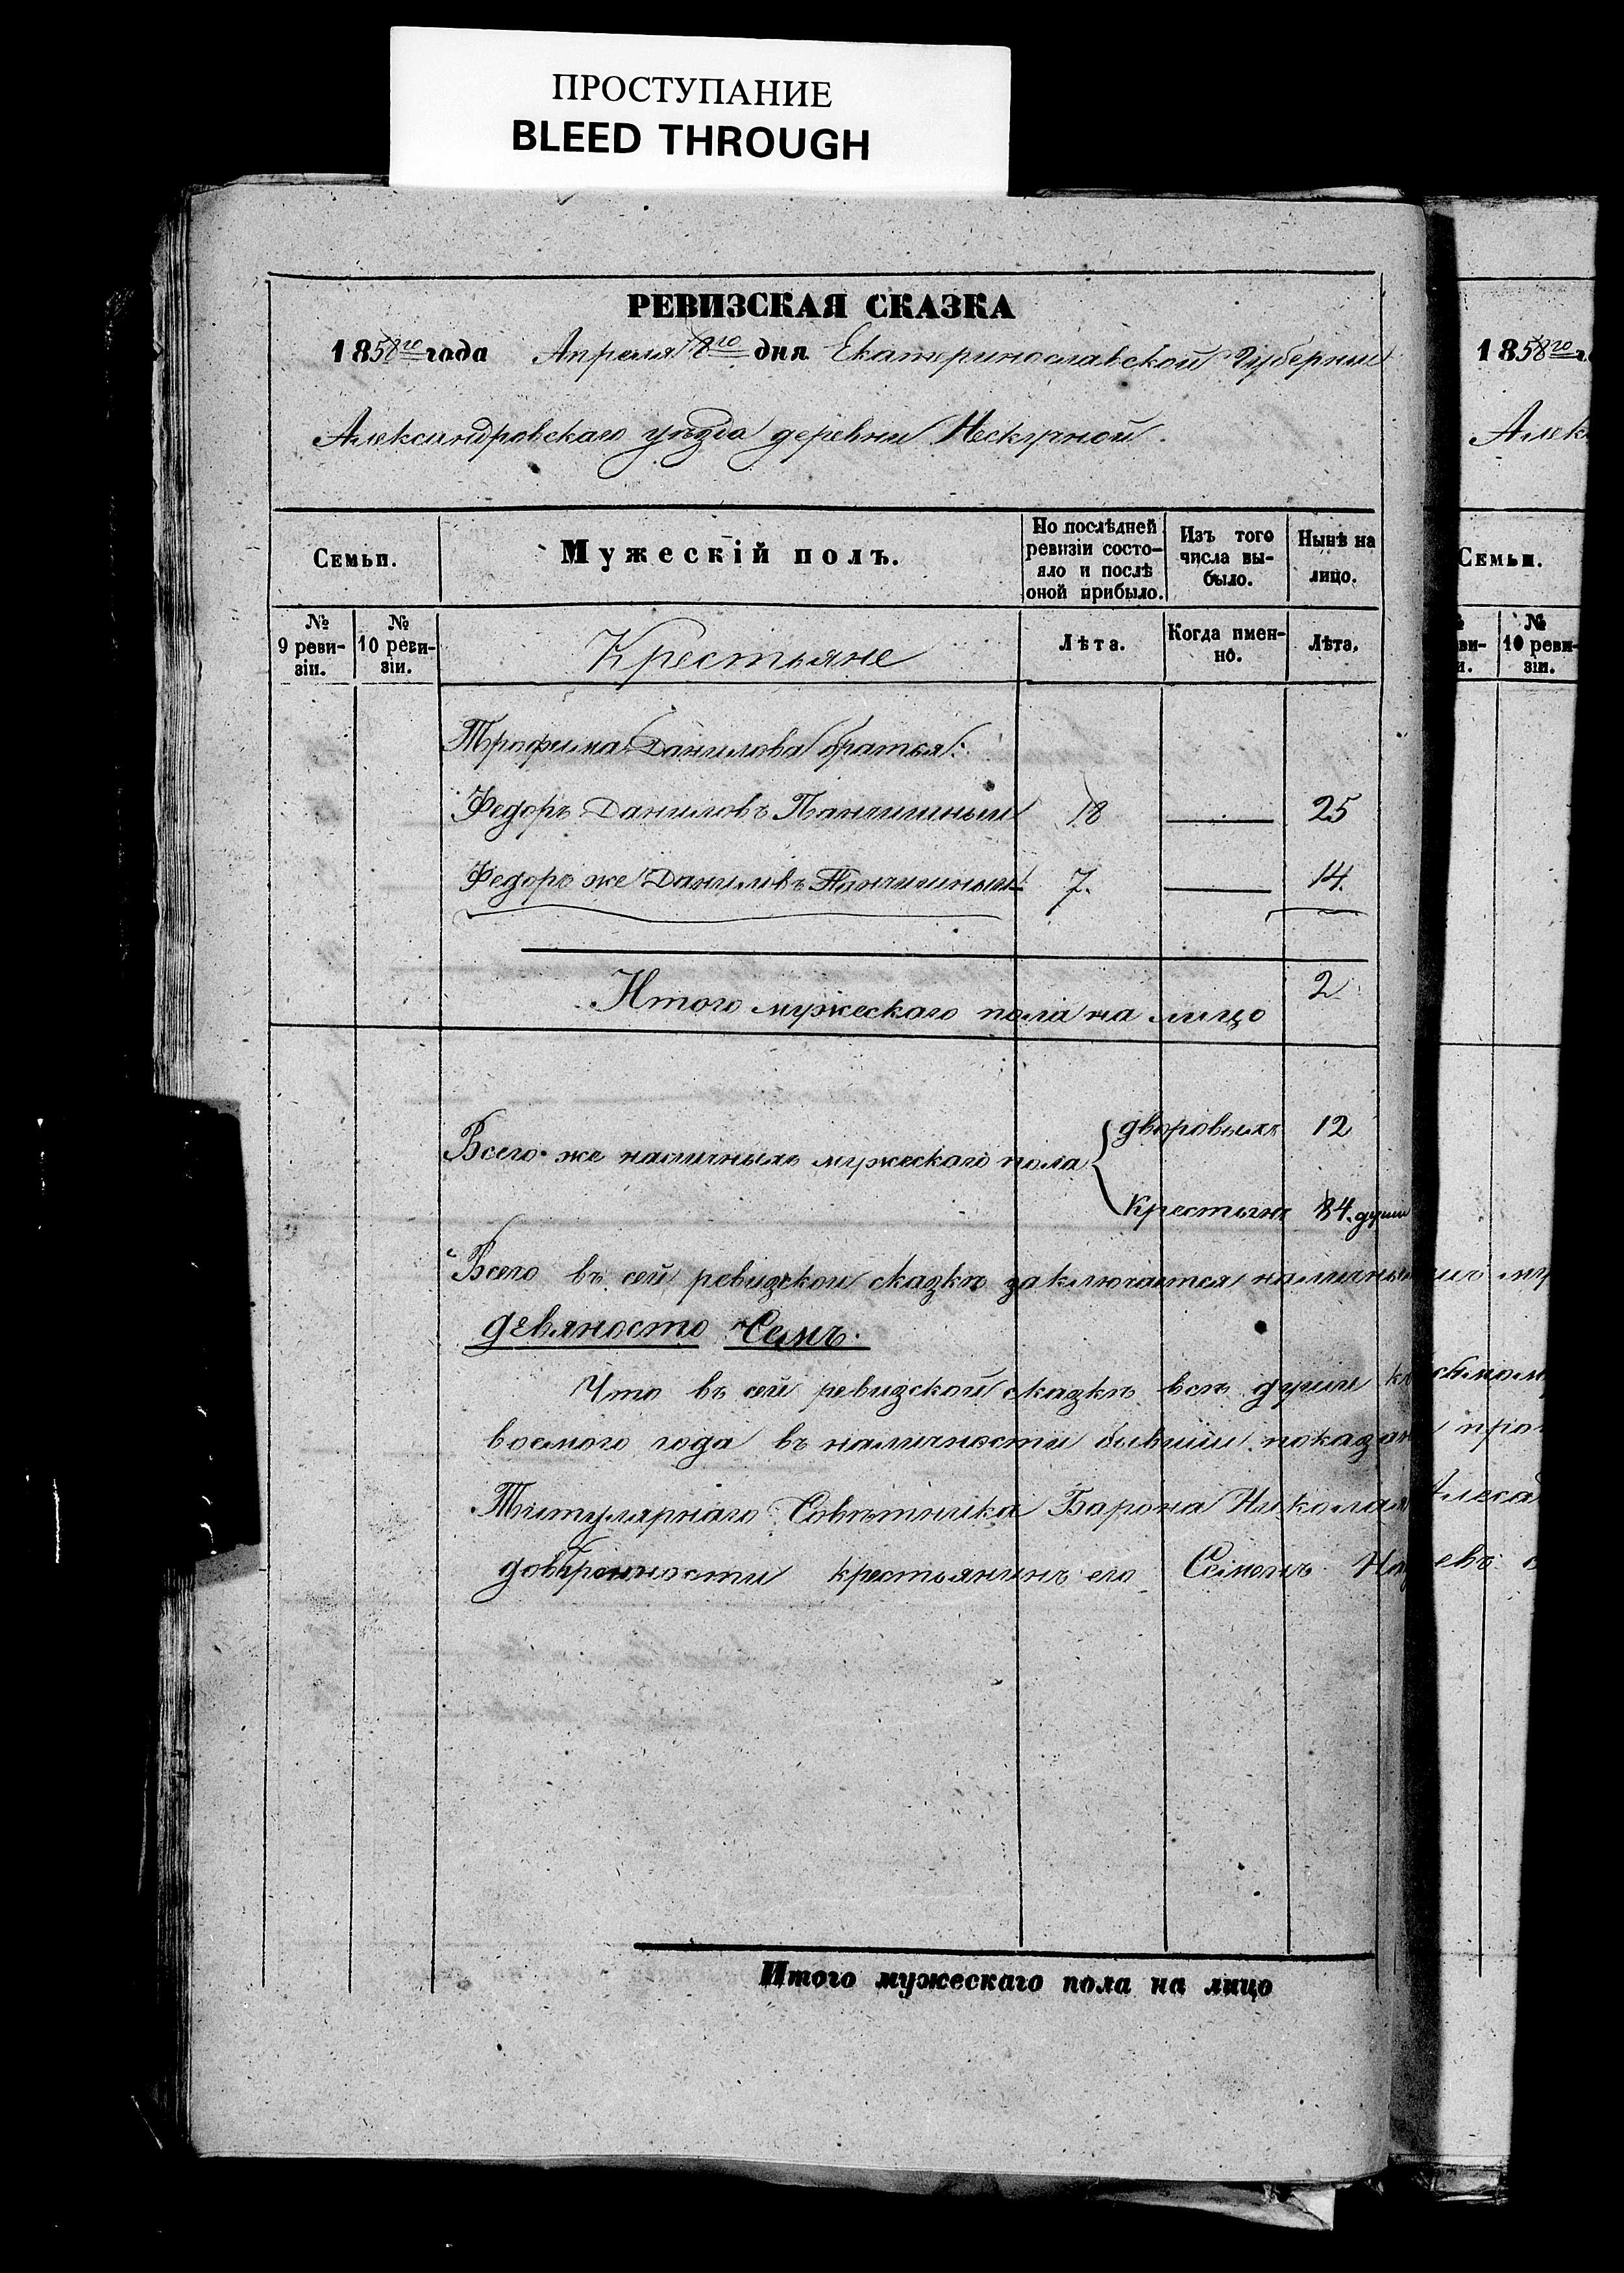 ПРОСТУПАНИЕ
BLEED THROUGH
РЕВИЗСКАЯ СКАЗКА
1858го года Апреля 18го дня Екатеринославской Губернии
Александровскаго уѣзда деревни Нескучной.
Семьи. Мужескій полъ. По послѣдней ревизіи состояло и послѣ оной прибыло. Изъ того числа выбыло. Нынѣ на лицо.
№ 9 ревизіи. № 10 ревизіи. Крестьяне Лѣта. Когда именно. Лѣта.
Трофима Данилова братья:
Федоръ Даниловъ 18 — 25
Федоръ же Даниловъ 7. — 14.
Итого мужескаго пола на лицо 2
Всего же наличныхъ мужескаго пола { дворовыхъ 12
крестьянъ 84. души
Всего въ сей ревизской сказкѣ заключается
девяносто Семь.
Что въ сей ревизской сказкѣ всѣ души
восмого года въ наличности бывшіи
Титулярнаго Совѣтника Барона Николая
довѣренности крестьянинъ его Семенъ
Итого мужескаго пола на лицо
1858го
Алек
Семьи.
№ 10 ревизіи.